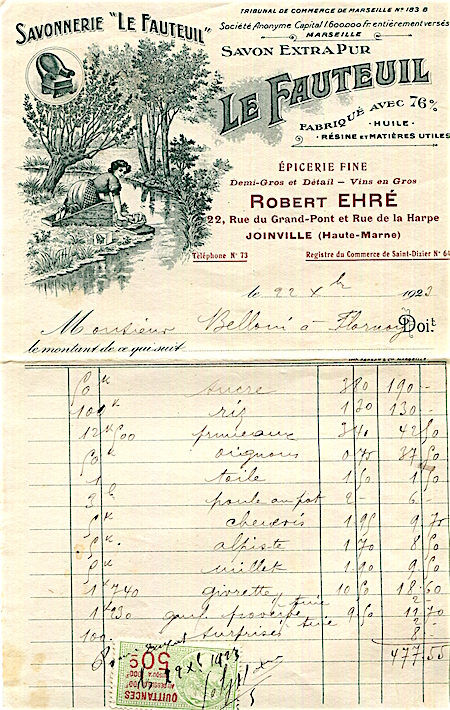 TRIBUNAL DE COMMERCE DE MARSEILLE N° 183 B
SAVONNERIE "LE FAUTEUIL"
Société Anonyme Capital 1.600.000 fr. entièrement versés
MARSEILLE
SAVON EXTRA PUR
LE FAUTEUIL
FABRIQUÉ AVEC 76%
· HUILE ·
· RÉSINE ET MATIÈRES UTILES
ÉPICERIE FINE
Demi-Gros et Détail — Vins en Gros
ROBERT EHRÉ
22, Rue du Grand-Pont et Rue de la Harpe
JOINVILLE (Haute-Marne)
Téléphone N° 73
Registre du Commerce de Saint-Dizier N° 64
le 22 Xbre 1923
Monsieur Belloni à Flornoy Doit
le montant de ce qui suit
50k sucre 380 190 -
100k riz 130 130 -
12k500 pruneaux 340 42 50
50k oignons 0.75 37 50
1 toile 1 50 1 50
3 poule au pot 2 - 6 -
5k chenevis 1.95 9 75
5k. alpiste 1 70 8 50
5k millet 1.90 9 50
1k740 givrette 10 50 18.60
1k230 9 50 11.70
100. surprises 8 -
477.55
QUITTANCES
50c
1923